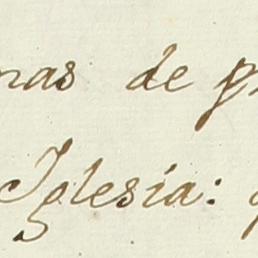 nas de p
Iglesia: